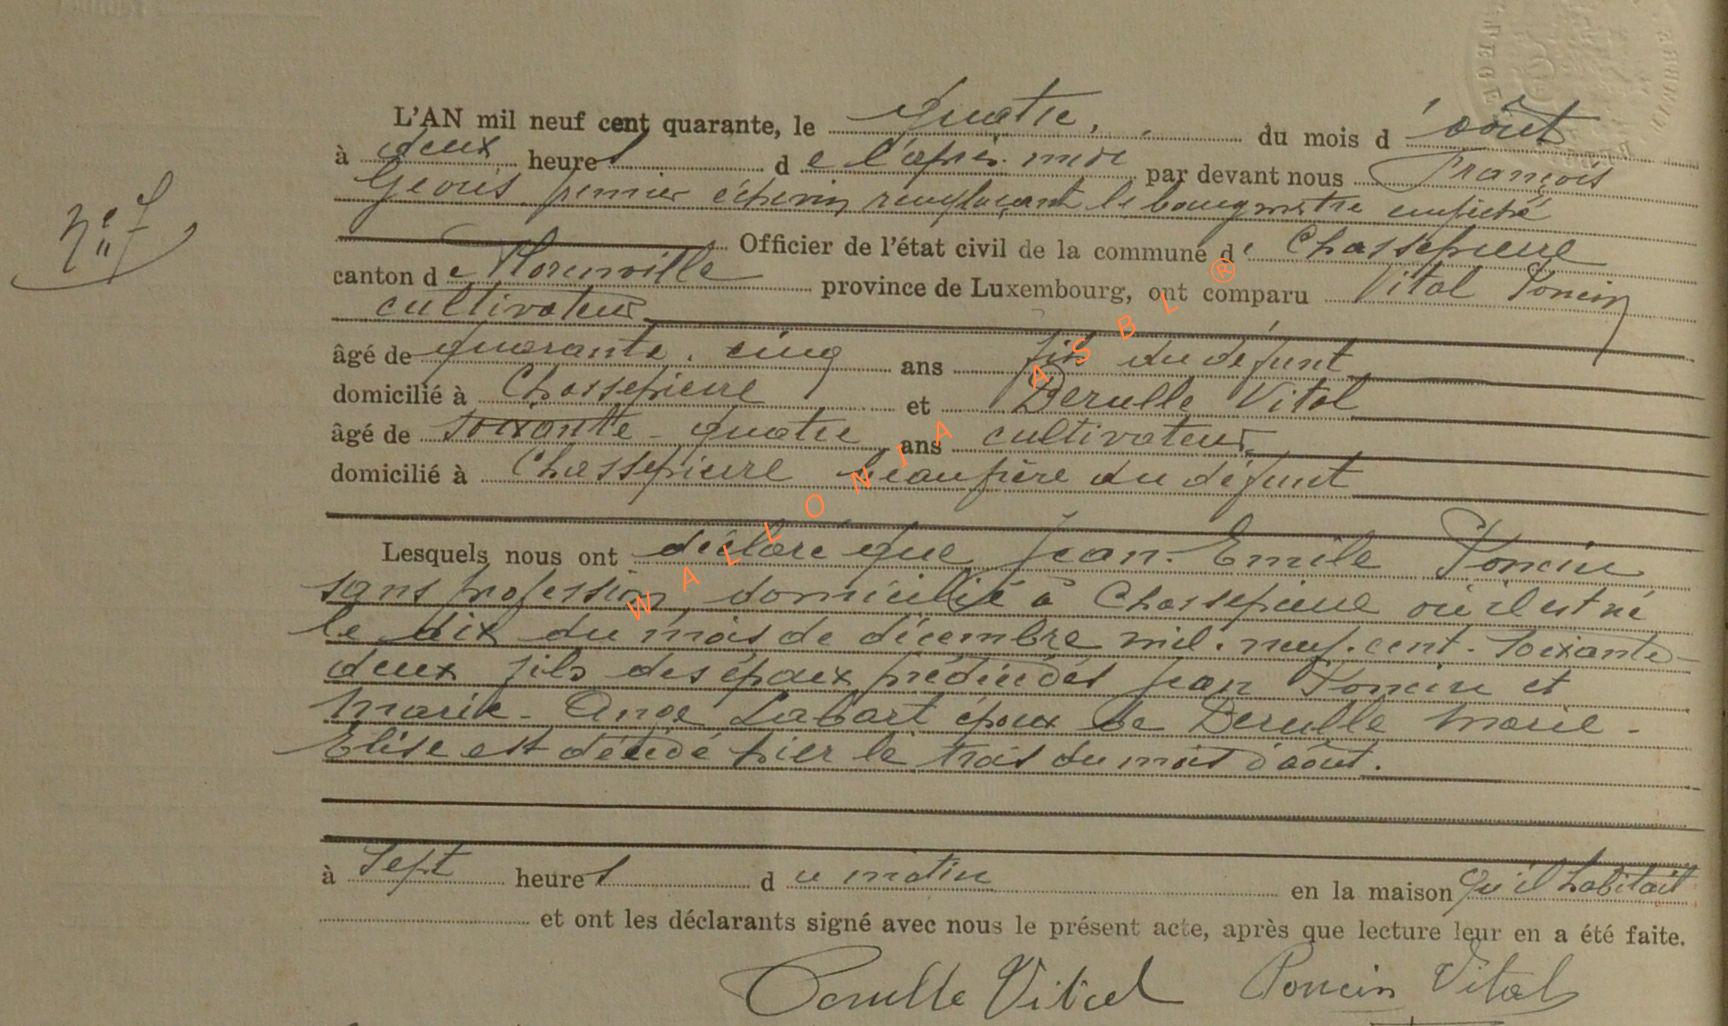 L'AN mil neuf cent quarante, le quatre du mois d'août
à deux heures de l'après-midi par devant nous François
Geors premier échevin remplaçant le bourgmestre empêché
Officier de l'état civil de la commune de Chassepierre
canton de Florenville province de Luxembourg, ont comparu Vital Poncin
cultivateur
âgé de quarante-cinq ans fils du défunt
domicilié à Chassepierre et Derulle Vital
âgé de soixante-quatre ans cultivateur
domicilié à Chassepierre beaufrère du défunt
n° 7
Lesquels nous ont déclaré que Jean-Emile Poncin
sans profession, domicilié à Chassepierre où il est né
le dix du mois de décembre mil-neuf-cent-soixante-
deux fils des époux prédécédés Jean Poncin et
Marie-Ange Labart époux de Derulle Marie-
Elise est décédé hier le trois du mois d'août.
à sept heures du matin en la maison qu'il habitait
et ont les déclarants signé avec nous le présent acte, après que lecture leur en a été faite.
Derulle Vital Poncin Vital
WALLONIA ASBL ®